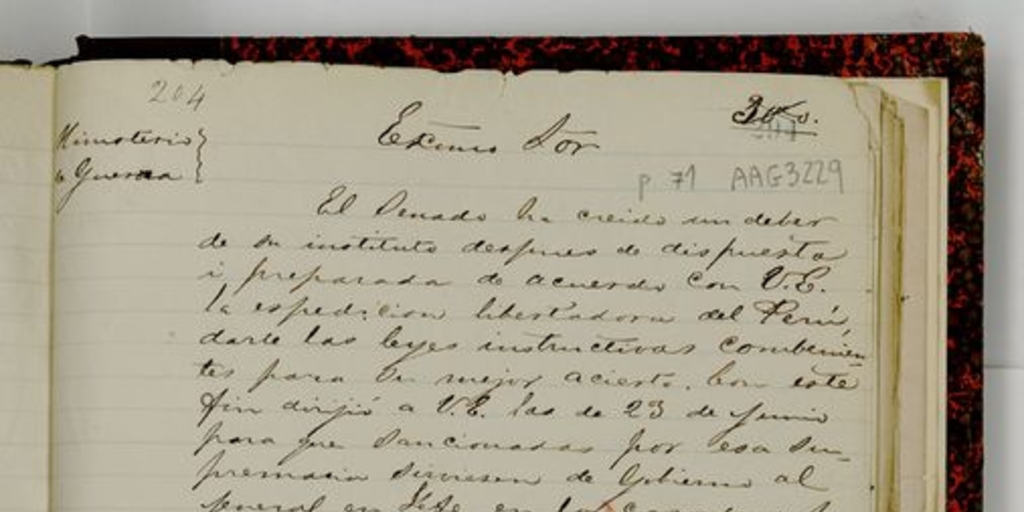 204
Ministerio
de Guerra
Exmo Sor
30 v.
p 71 AAG3229
El Senado ha creido un deber
de su instituto despues de dispuesta
i preparada de acuerdo con V.E.
la espedicion libertadora del Perú,
darle las leyes instructivas combenien-
tes para su mejor acierto. Con este
fin dirijió a V.E. las de 23 de Junio
para que sancionadas por esa Su-
premacia sirviesen de Gobierno al
Jeneral en Jefe en la